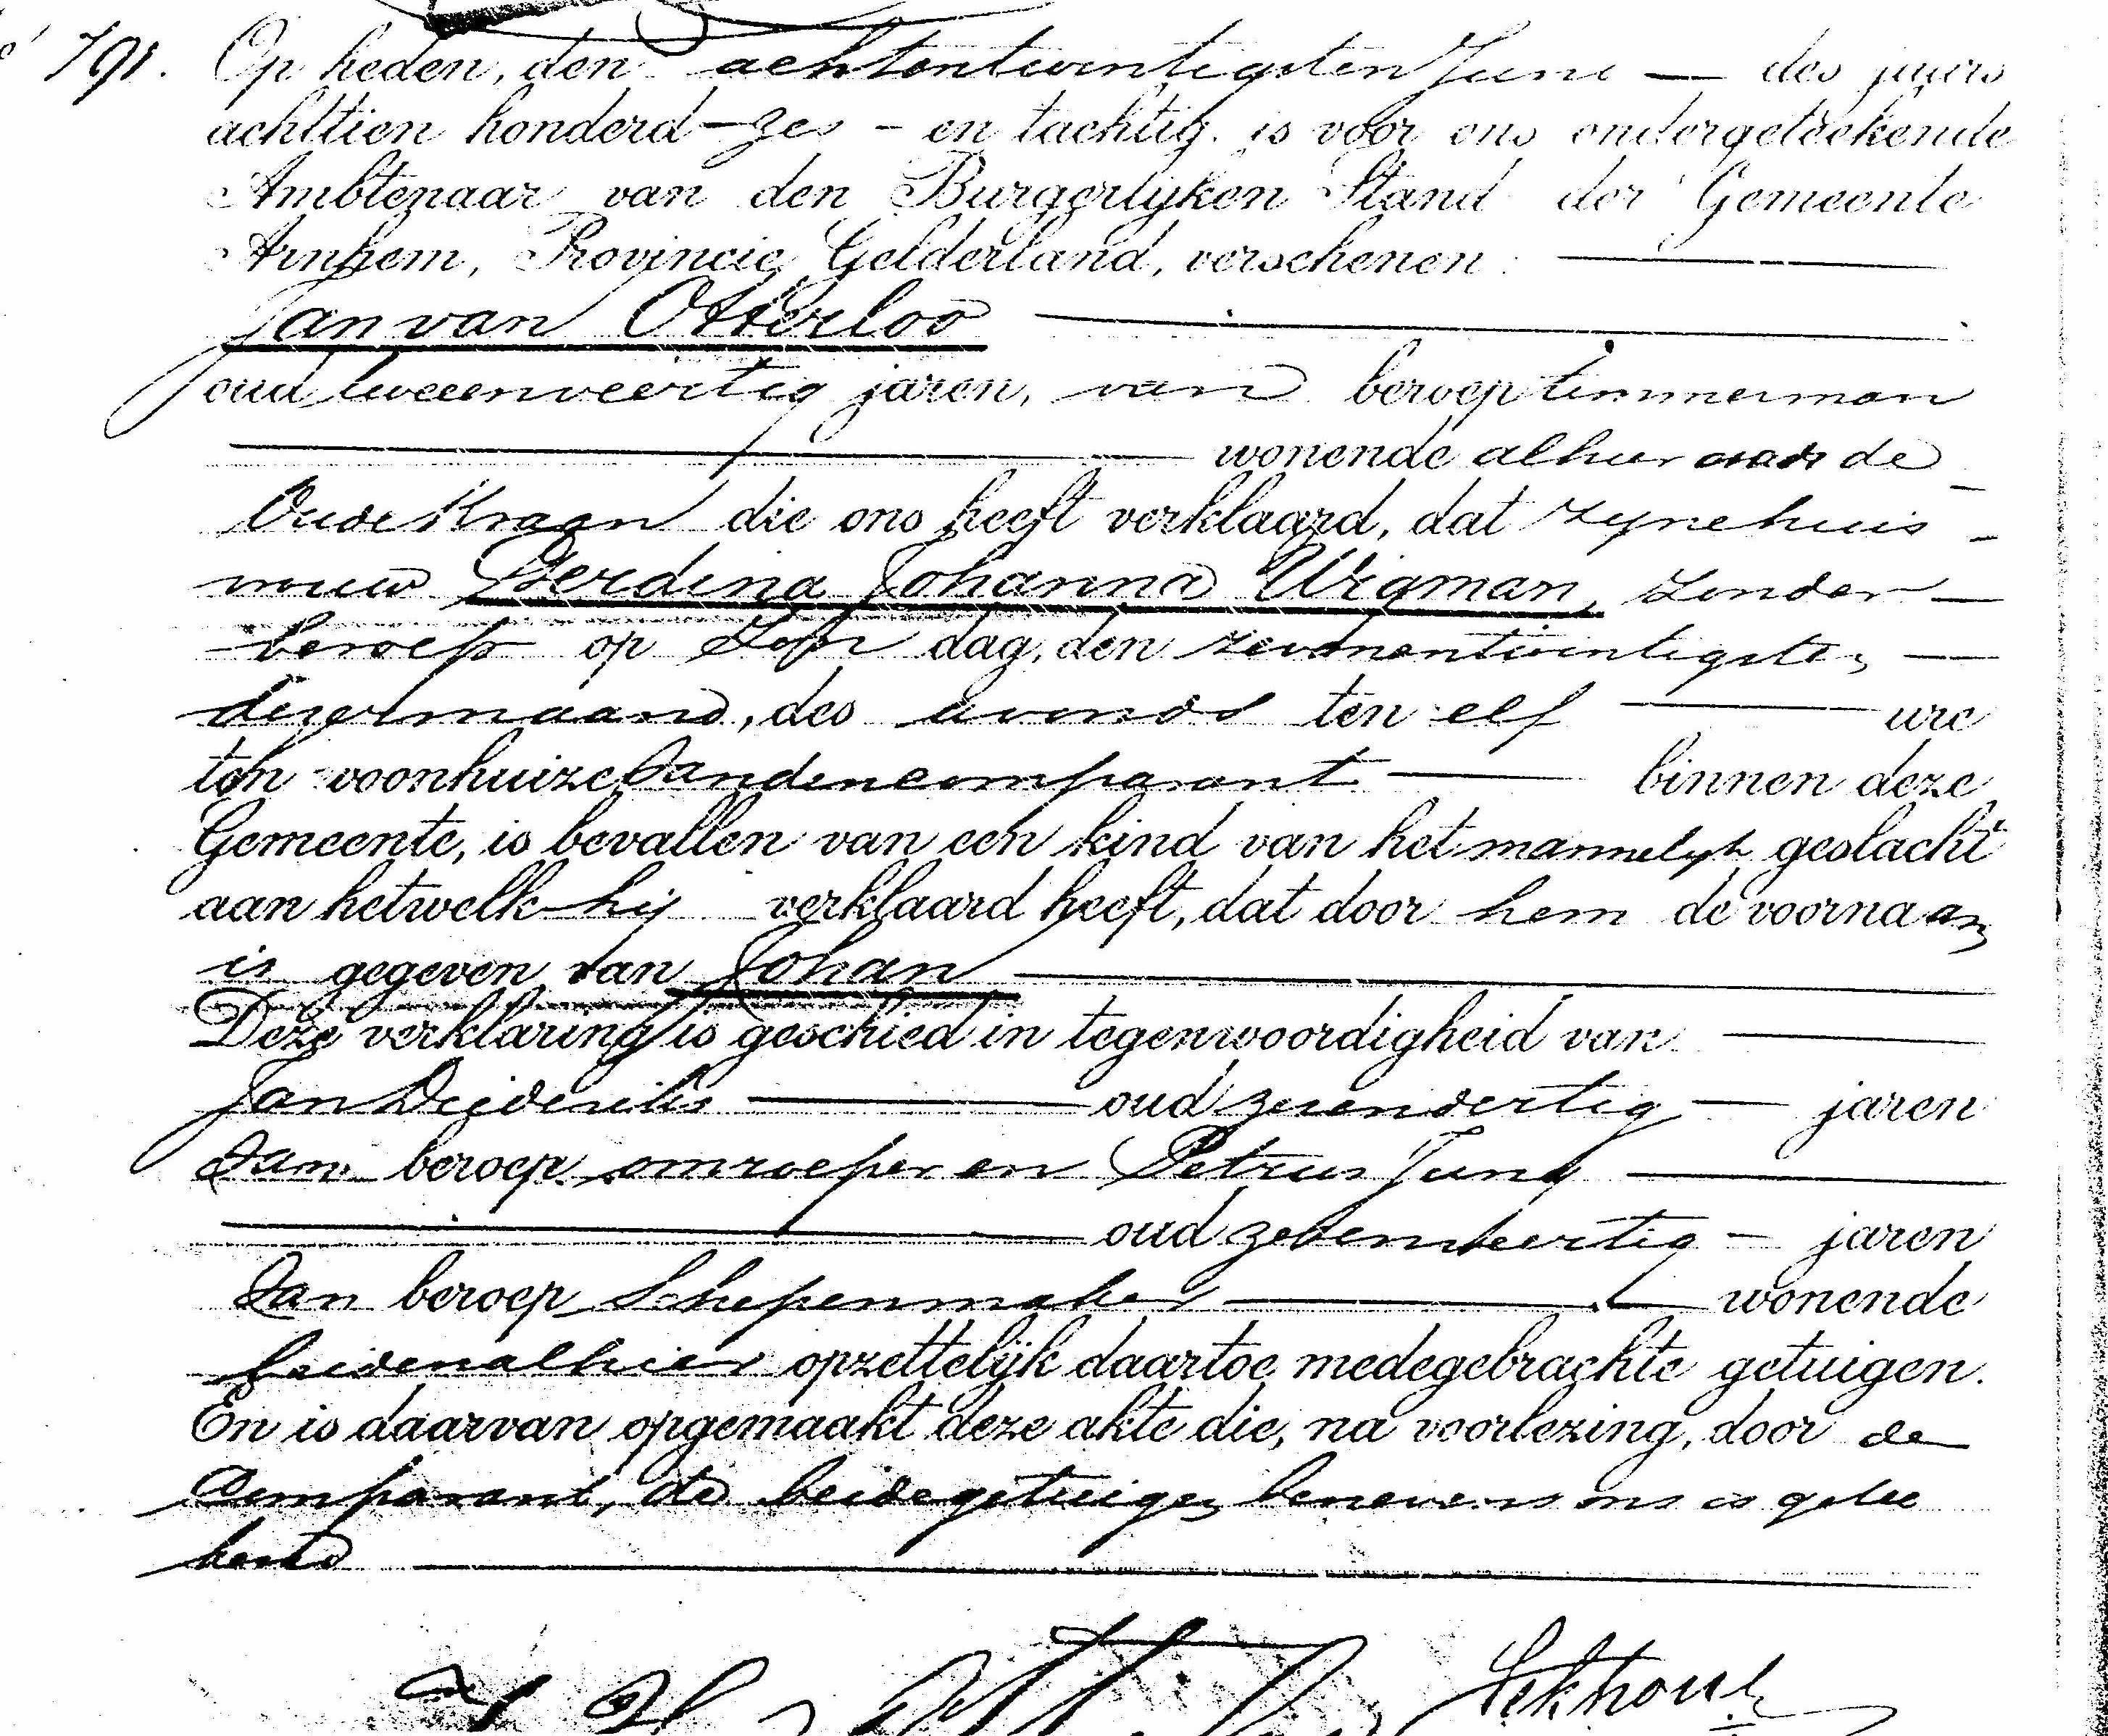 No 791. Op heden, den achtentwintigsten Juni — des jaars
achttien honderd - zes - en tachtig, is voor ons ondergeteekende
Ambtenaar van den Burgerlijken Stand der Gemeente
Arnhem, Provincie Gelderland, verschenen:
Jan van Otterloo
oud tweeenveertig jaren, van beroep timmerman
wonende alhier aan de
Oude Kraan die ons heeft verklaard, dat zijne huis-
vrouw Gerdina Johanna Wigman, zonder
beroep op Zon dag, den zevenentwintigsten
dezer maand, des avonds ten elf ure
ten woonhuize van den comparant binnen deze
Gemeente, is bevallen van een kind van het mannelijk geslacht
aan hetwelk hij verklaard heeft, dat door hem de voornaam
is gegeven van Johan
Deze verklaring is geschied in tegenwoordigheid van
Jan Diederiks oud zevendertig jaren
van beroep omroeper en Petrus Jung
oud zevenveertig - jaren
van beroep schepenmaker wonende
beiden alhier opzettelijk daartoe medegebrachte getuigen.
En is daarvan opgemaakt deze akte die, na voorlezing, door de
Comparant, de beide getuigen benevens ons is getee
kend